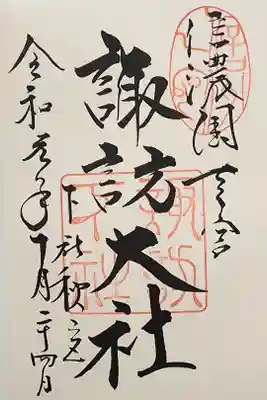 信濃國
一之宮
諏訪大社
下社秋宮
令和元年十月二十四日